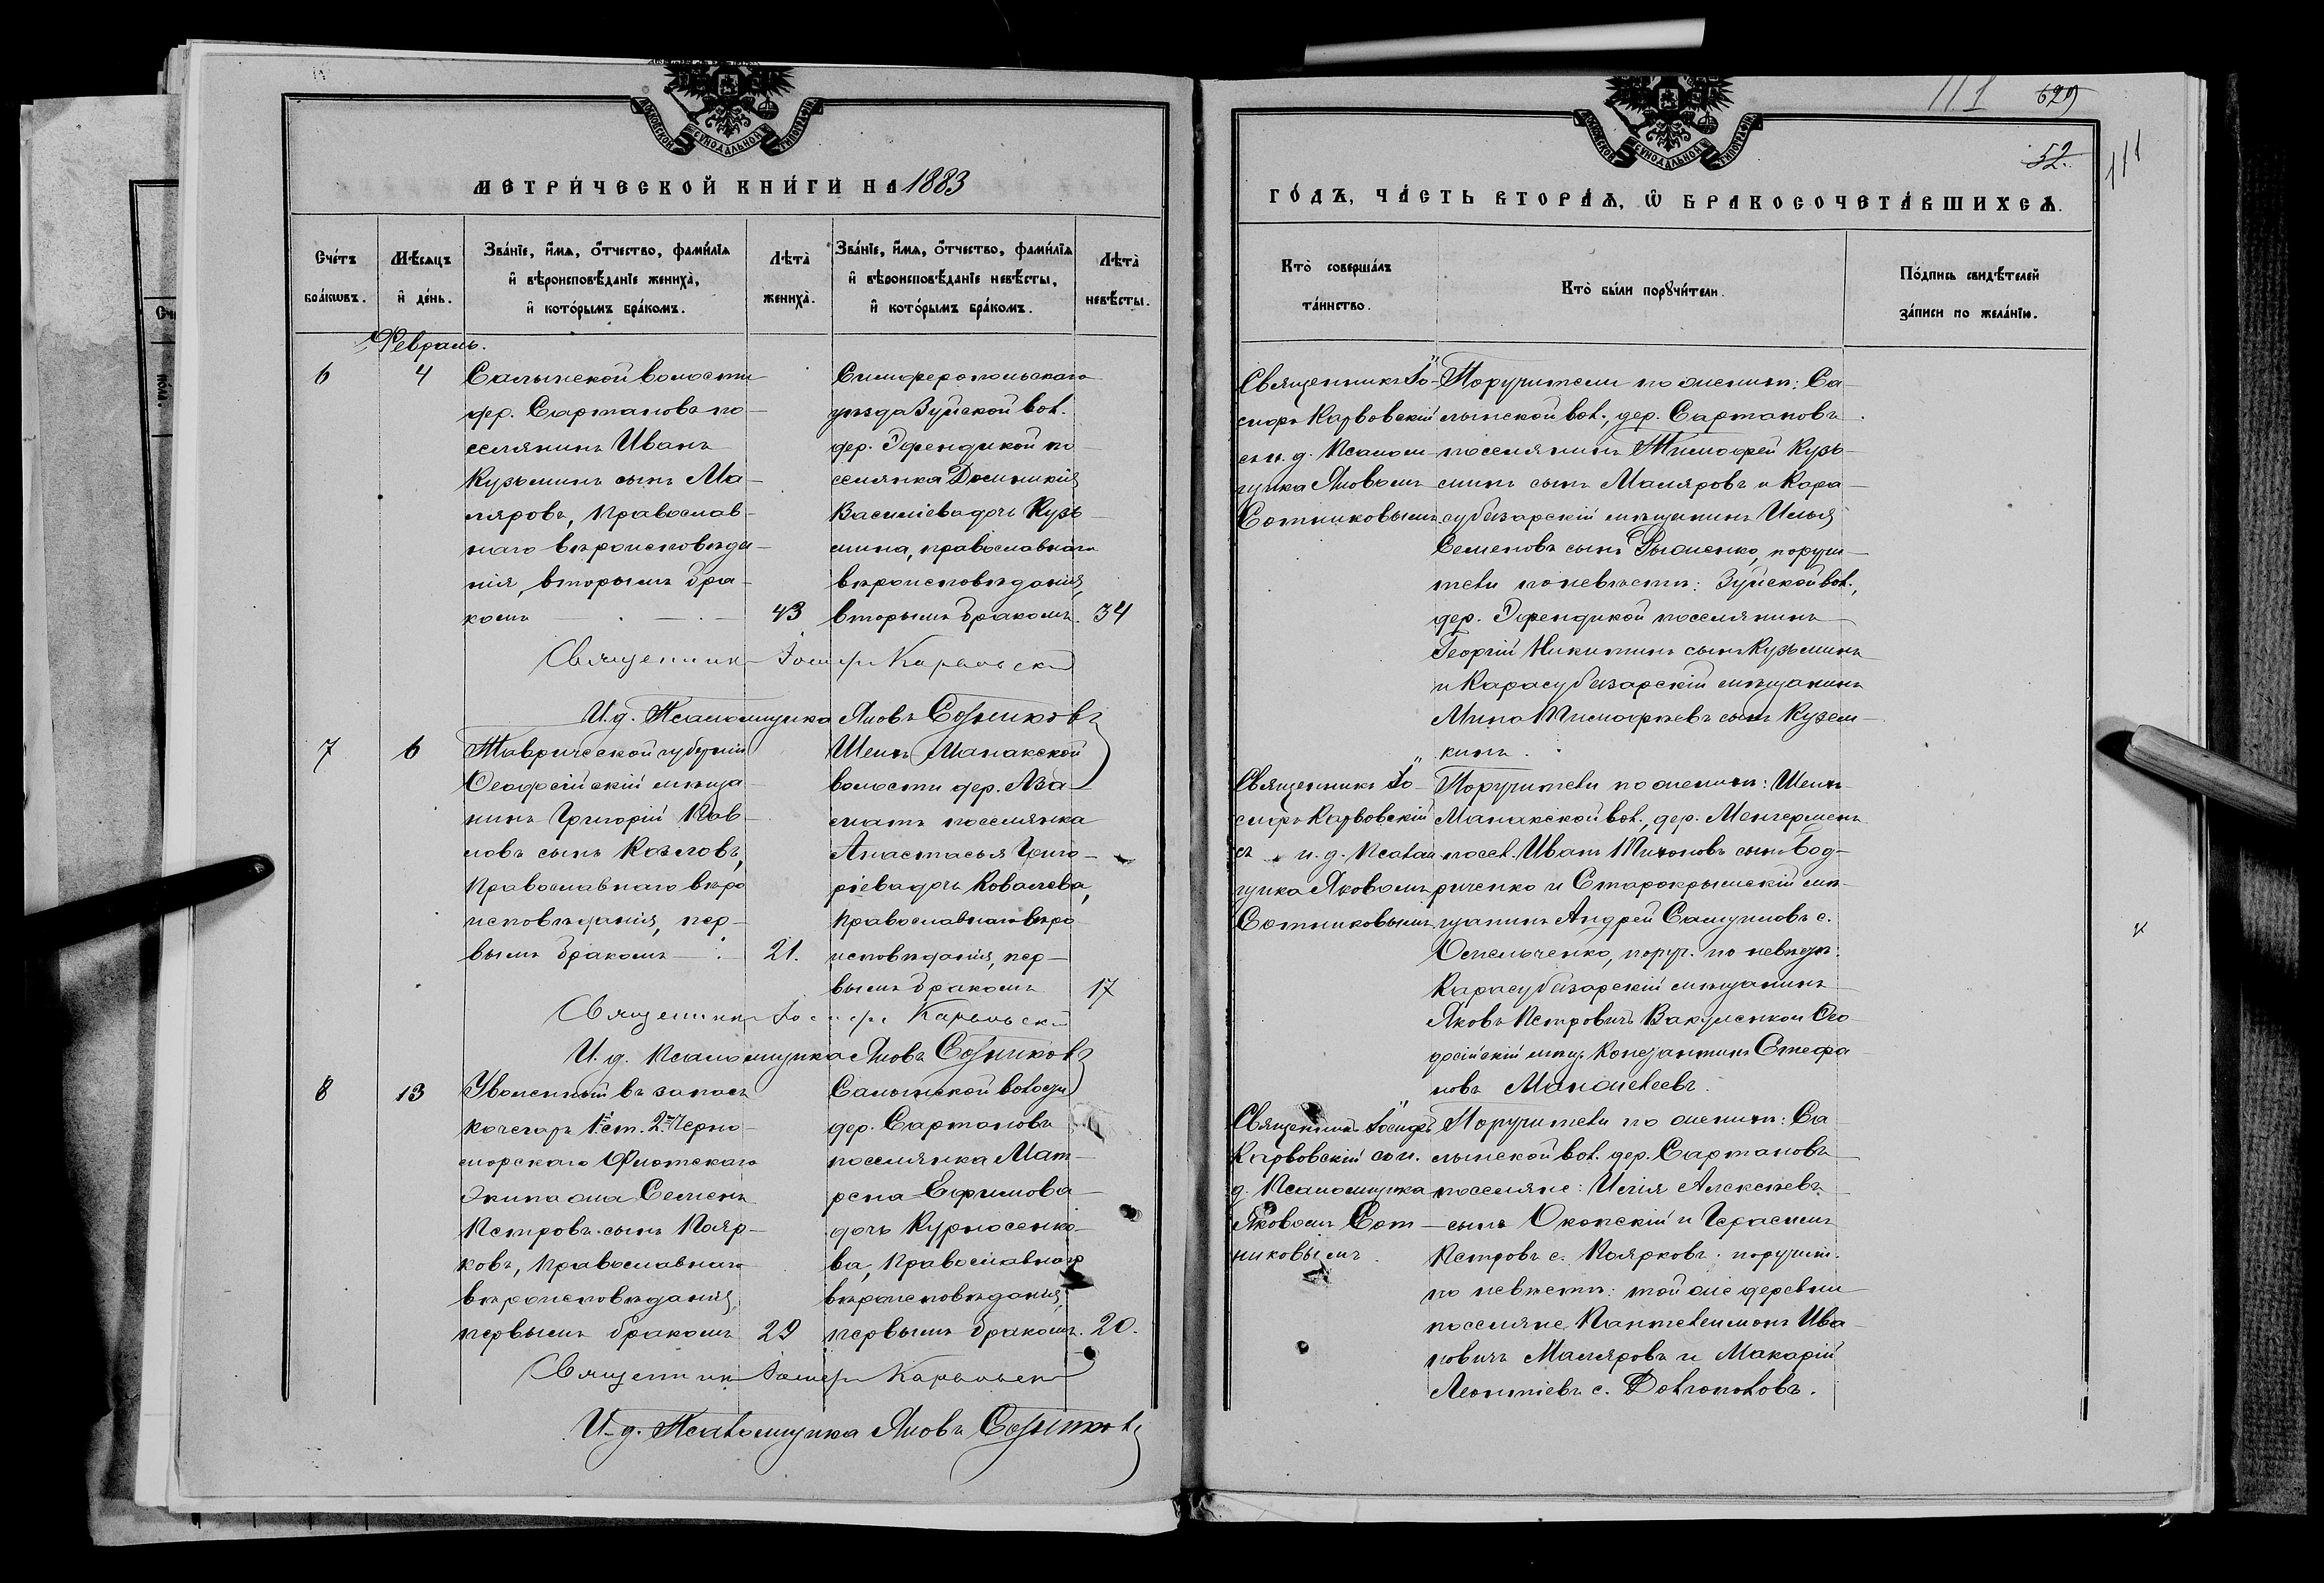 МЕТРИЧЕСКОЙ КНИГИ НА 1883
Счетъ браковъ.
Мѣсяцъ и день.
Званіе, имя, отчество, фамилія и вѣроисповѣданіе жениха, и которымъ бракомъ.
Лѣта жениха.
Званіе, имя, отчество, фамилія и вѣроисповѣданіе невѣсты, и которымъ бракомъ.
Лѣта невѣсты.
Февраль.
6
4
Салынской волости
дер. Сартановъ по-
селянинъ Иванъ
Кузьминъ сынъ Ма-
ляровъ, православ-
наго вѣроисповѣда-
нія, вторымъ бра-
комъ
43
Симферопольскаго
уѣзда Зуйской вол.
дер. Эфендикой по-
селянка Домникія
Василіева дочь Кузь-
мина, православнаго
вѣроисповѣданія,
вторымъ бракомъ.
34
Священникъ Іосифъ Карвовскій
И. д. Псаломщика Яковъ Сотниковъ
7
6
Таврической губерніи
Ѳеодосійскій мѣща-
нинъ Григорій Пав-
ловъ сынъ Козловъ,
Православнаго вѣро
исповѣданія, пер-
вымъ бракомъ
21.
Шеихъ Манакской
волости дер. Аза-
матъ поселянка
Анастасья Григо-
ріева дочь Ковалева,
православнаго вѣро
исповѣданія, пер-
вымъ бракомъ
17
Священникъ Іосифъ Карвовскій
И. д. Псаломщика Яковъ Сотниковъ
8
13
Уволенный въ запасъ
кочегаръ 1й ст. 2го Черно-
морскаго Флотскаго
Экипажа Семенъ
Петровъ сынъ Пояр-
ковъ, Православнаго
вѣроисповѣданія,
первымъ бракомъ
29
Салынской волости
дер. Сартановъ
поселянка Мат-
рена Ефимова
дочь Курносенко-
ва, Православнаго
вѣроисповѣданія,
первымъ бракомъ.
20.
Священникъ Іосифъ Карвовскій
И. д. Псаломщика Яковъ Сотниковъ
111
629
52.
111
ГОДЪ, ЧАСТЬ ВТОРАЯ, Ѡ БРАКОСОЧЕТАВШИХСЯ.
Кто совершалъ таинство.
Кто были поручители.
Подпись свидѣтелей записи по желанію.
Священникъ Іо-
сифъ Карвовскій
съ и. д. Псалом-
щика Яковомъ
Сотниковымъ
Поручители по женихѣ: Са-
лынской вол., дер. Сартановъ
поселянинъ Тимофей Кузь-
минъ сынъ Маляровъ и Кара-
субазарскій мѣщанинъ Илья
Семеновъ сынъ Рыженко, поручи-
тели по невѣстѣ: Зуйской вол.,
дер. Эфендикой поселянинъ
Георгій Никитинъ сынъ Кузьминъ
и Карасубазарскій мѣщанинъ
Мина Тимофѣевъ сынъ Кузем-
кинъ.
Священникъ Іо-
сифъ Карвовскій
съ и. д. Псалом
щика Яковомъ
Сотниковымъ
Поручители по женихѣ: Шеихъ
Манакской вол., дер. Менгерменъ
посел. Иванъ Тихоновъ сынъ Бод-
риченко и Старокрымскій мѣ-
щанинъ Андрей Самуиловъ с.
Омельченко, поруч. по невѣстѣ:
Карасубазарскій мѣщанинъ
Яковъ Петровичъ Вакуленко и Ѳео-
досійскій мѣщ. Константинъ Стефа-
новъ
Священникъ Іосифъ
Карвовскій съ и.
д. Псаломщика
Яковомъ Сот-
никовымъ.
Поручители по женихѣ: Са
лынской вол. дер. Сартановъ
поселяне: Илія Алексѣевъ
сынъ Оконскій и Герасимъ
Петровъ с. Поярковъ. поручит.
по невѣстѣ: той же деревни
поселяне Пантелеимонъ Ива-
новичъ Маляровъ и Макарій
Леонтіевъ с. Долгополовъ.